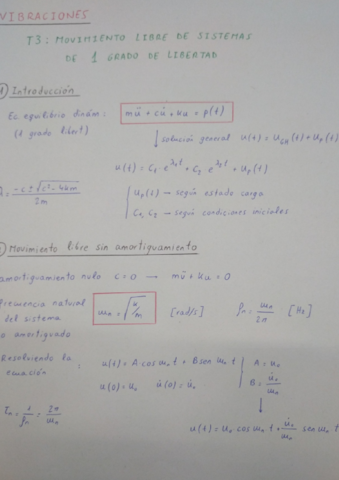 VIBRACIONES
T3: MOVIMIENTO LIBRE DE SISTEMAS
DE 1 GRADO DE LIBERTAD
1) Introducción
Ec equilibrio dinám: mü + cu̇ + ku = p(t)
(1 grado libert)
↓ solución general u(t) = u_GH(t) + u_p(t)
u(t) = C₁ e^{λ₁t} + C₂ e^{λ₂t} + u_p(t)
λ = (-c ± √(c² - 4km)) / 2m
u_p(t) → según estado carga
C₁, C₂ → según condiciones iniciales
2) Movimiento libre sin amortiguamiento
amortiguamiento nulo c = 0 → mü + ku = 0
Frecuencia natural
del sistema ω_n = √(k/m) [rad/s] f_n = ω_n / 2π [Hz]
no amortiguado
Resolviendo la
ecuación : u(t) = A cos ω_n t + B sen ω_n t | A = u₀
u(0) = u₀ u̇(0) = u̇₀ | B = u̇₀ / ω_n
T_n = 1/f_n = 2π/ω_n
↓
u(t) = u₀ cos ω_n t + u̇₀/ω_n sen ω_n t